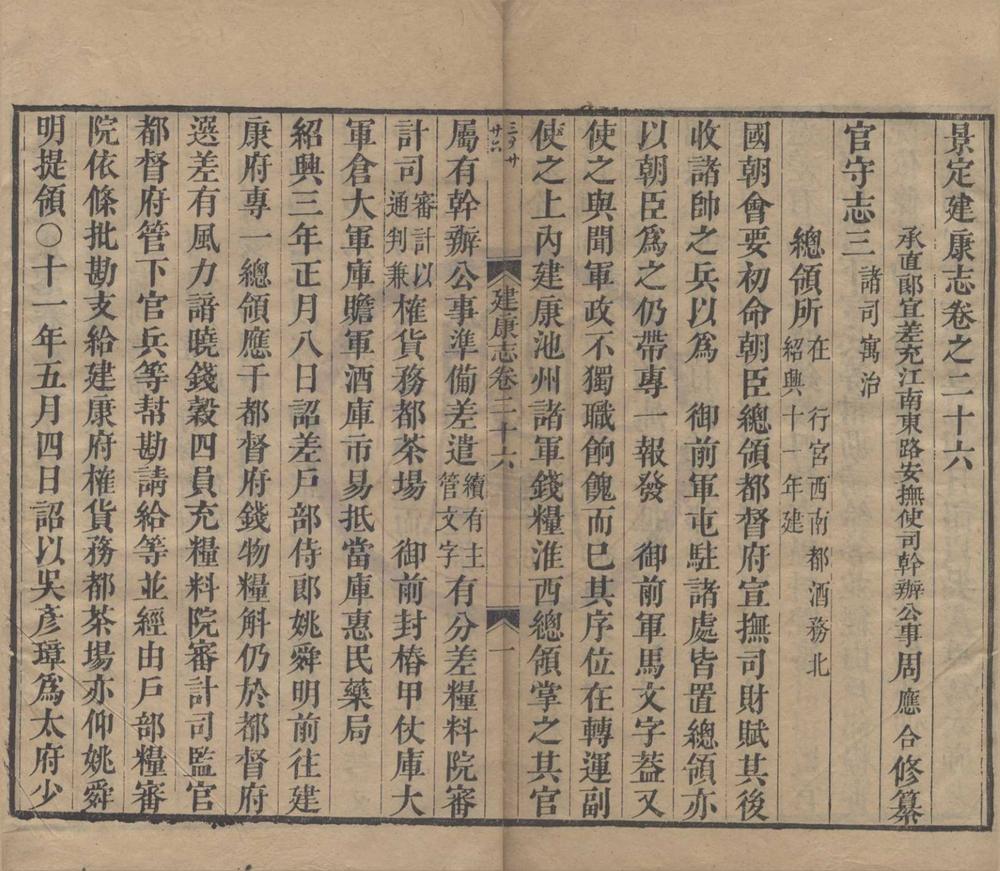 景定建康志卷之二十六
承直郎宣差充江南東路安撫使司幹辦公事周應合修纂
官守志三 諸司寓治
總領所 在 行宮西南都酒務北
紹興十一年建
國朝會要初命朝臣總領都督府宣撫司財賦其後
收諸帥之兵以為 御前軍屯駐諸處皆置總領亦
以朝臣為之仍帶專一報發 御前軍馬文字蓋又
使之與聞軍政不獨職餉餽而已其序位在轉運副
使之上內建康池州諸軍錢糧淮西總領掌之其官
建康志卷二十六 一
屬有幹辦公事準備差遣 續有主
管文字 有分差糧料院審
計司 審計以
通判兼 榷貨務都茶場 御前封樁甲仗庫大
軍倉大軍庫贍軍酒庫市易抵當庫惠民藥局
紹興三年正月八日詔差戶部侍郎姚舜明前往建
康府專一總領應干都督府錢物糧斛仍於都督府
選差有風力諳曉錢穀四員充糧料院審計司監官
都督府管下官兵等幫勘請給等並經由戶部糧審
院依條批勘支給建康府榷貨務都茶場亦仰姚舜
明提領○十一年五月四日詔以吳彥璋為太府少